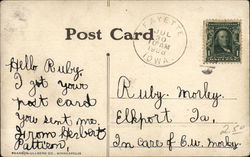 Post Card
FAYETTE
JUL
30
AM
1908
IOWA
Hello Ruby.
I got your
post card
you sent me.
From Herbert
Pattison,
Ruby Morley.
Elkport Ia.
In care of C.W. Morley.